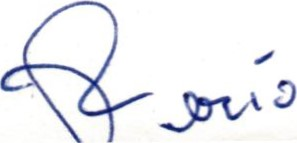 Rocío